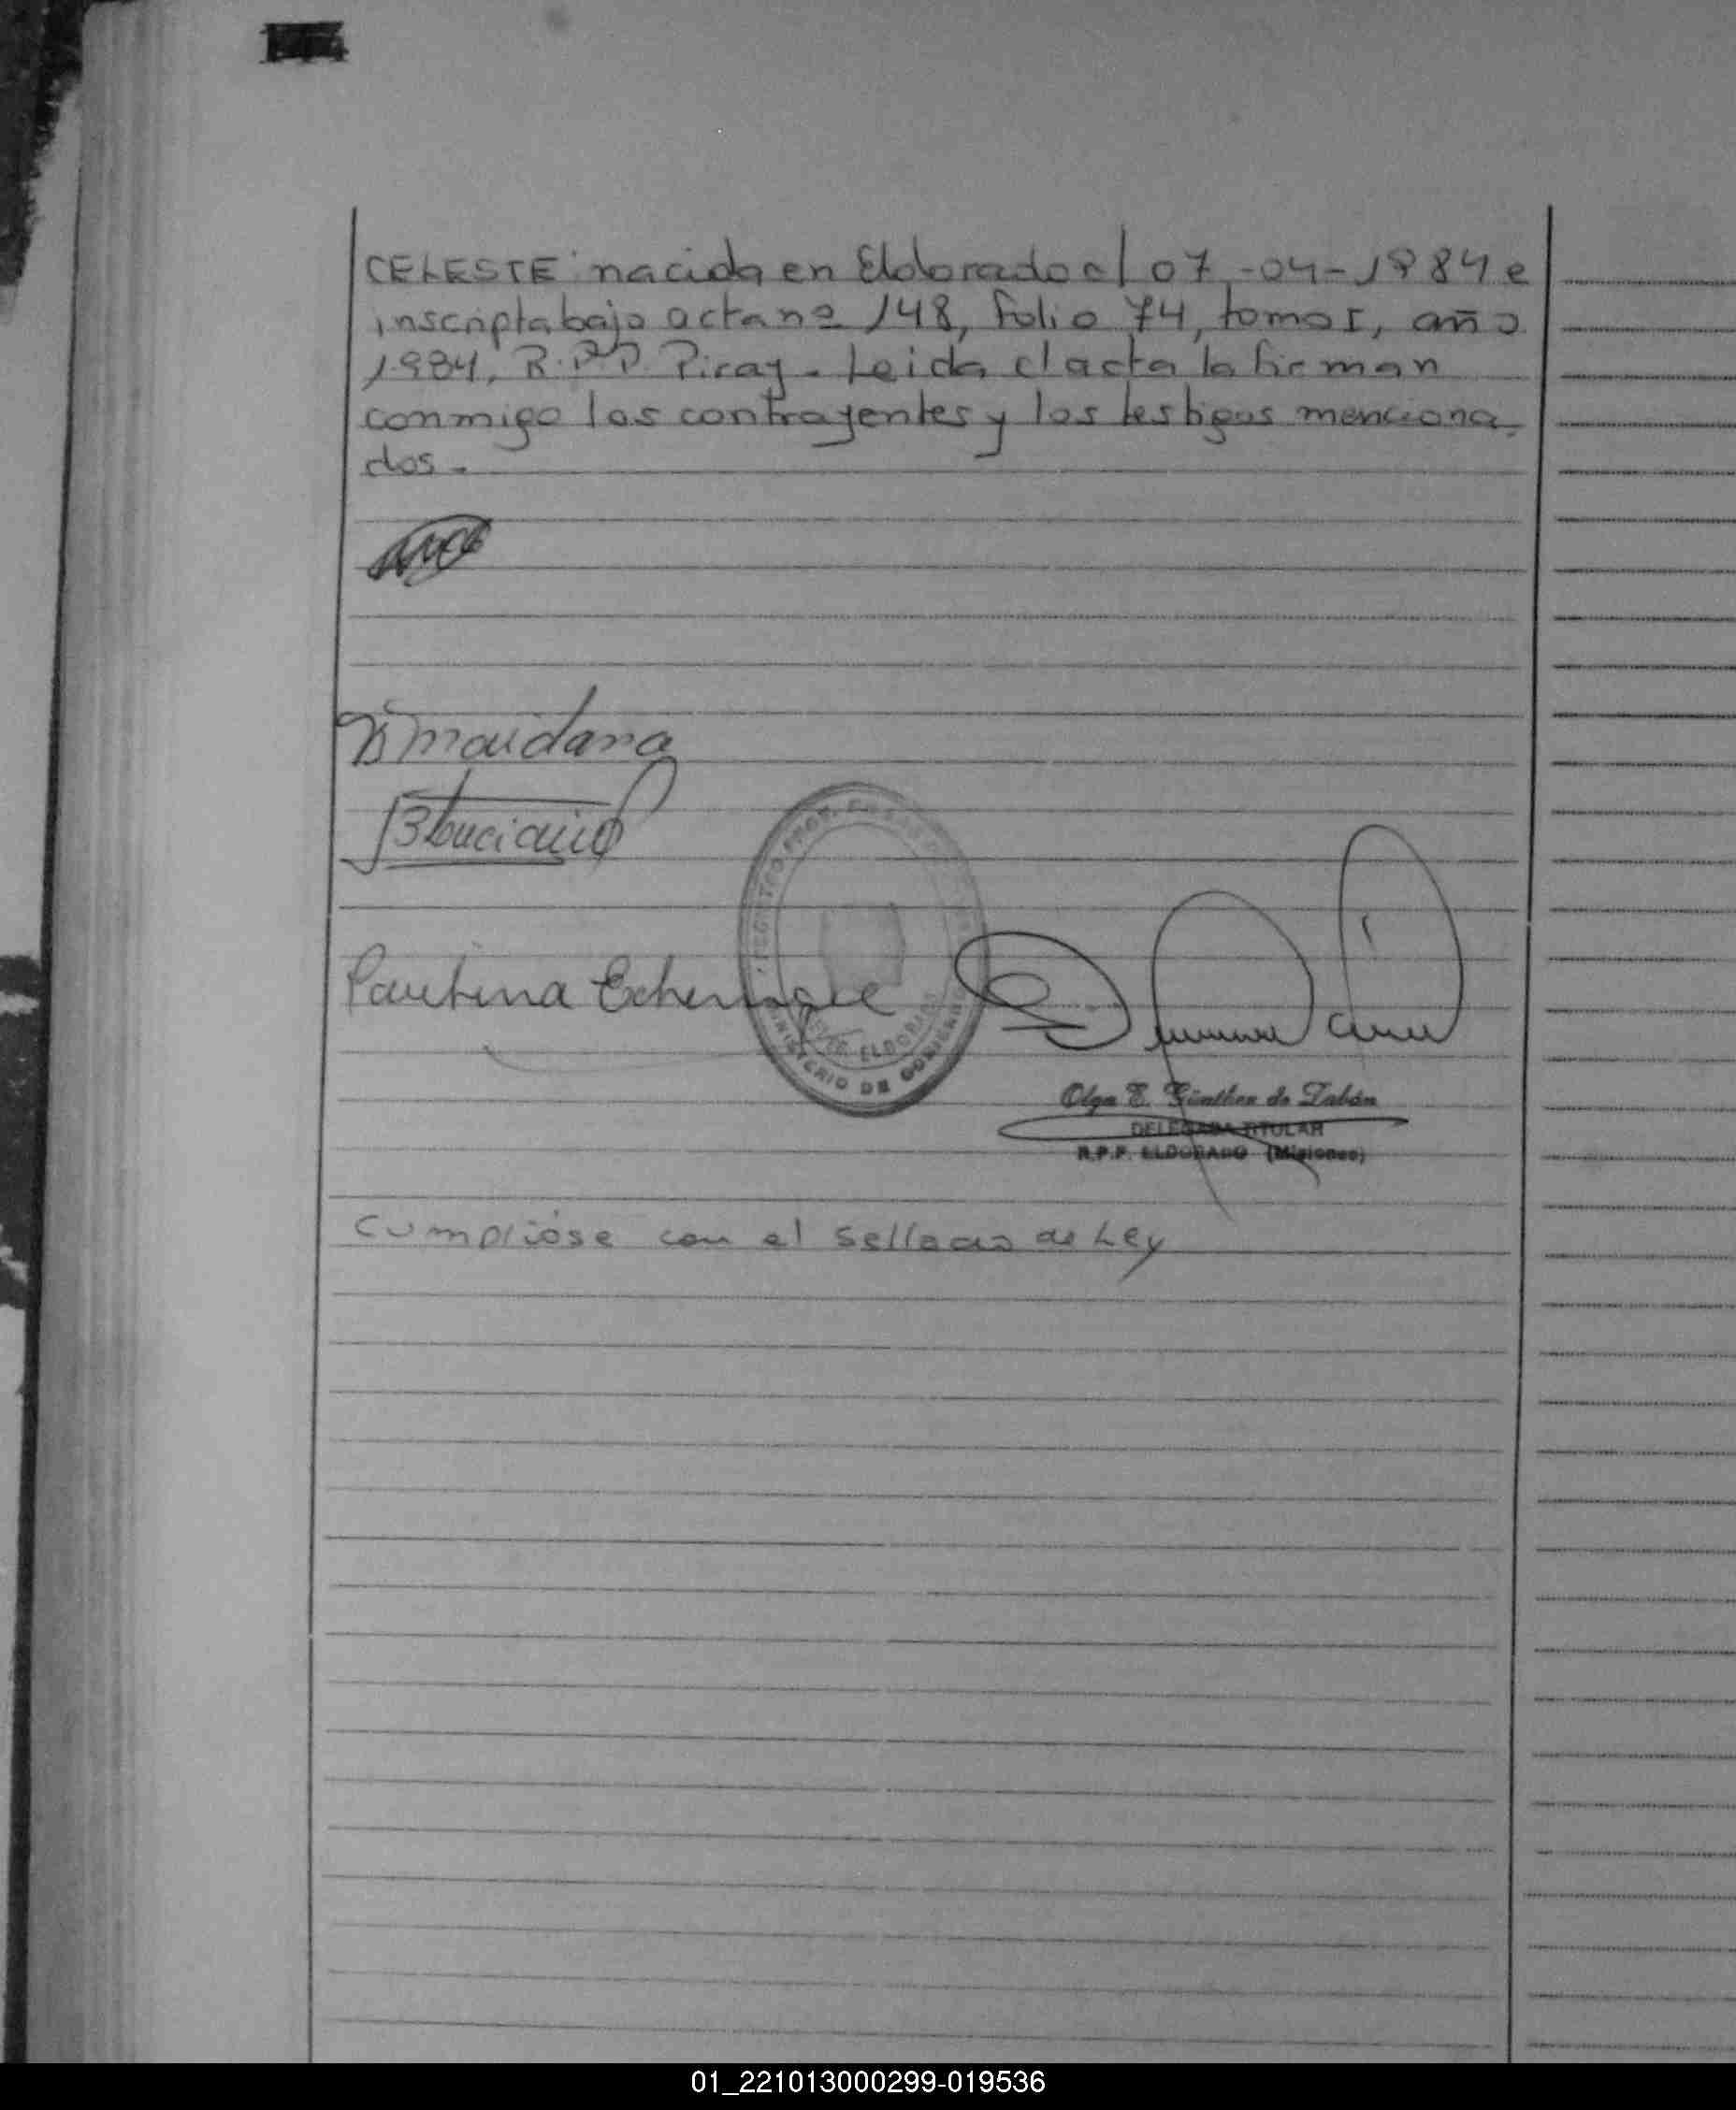 CELESTE nacida en Eldorado el 07-04-1984 e
inscripta bajo acta nº 148, folio 74, tomo I, año
1984, R.P.P. Piray. Leida el acta la firman
conmigo los contrayentes y los testigos menciona
dos.
Maidana
Paulina Echenique
MINISTERIO DE GOBIERNO
ELDORADO
Olga E. Günther de Zabán
DELEGADA TITULAR
R.P.P. ELDORADO (Misiones)
Cumplióse con el sellado de Ley
01_221013000299-019536